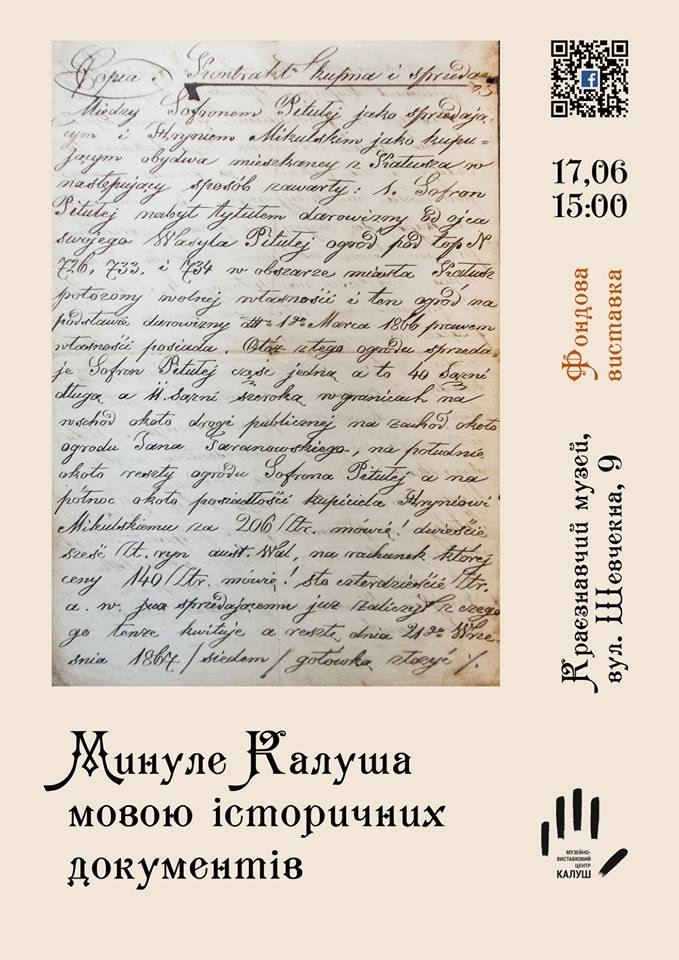 Copia. Kontrakt kupna i sprzedaży
Między Sofronem Pitułej jako sprzedają-
cym i Hryniem Mikulskim jako kupu-
jącym obydwa mieszkancy z Kałusza w
następujący sposób zawarty: 1. Sofron
Pitułej nabył tytułem darowizny od ojca
swojego Wasyla Pitułej ogród pod top N
726, 733, i 734 w obszarze miasta Kałusz
położony wolnej własności i ten ogród na
podstawie darowizny 1go Marca 1866 prawem
własności posiada. Otóż z tego ogrodu sprzeda-
je Sofron Pitułej część jedną a to 40 Sązni
długą a 11. Sązni szeroką w granicach na
wschód około drogi publicznej na zachód około
ogrodu Jana Taranowskiego, na południe
około reszty ogrodu Sofrona Pitułej a na
północ około posiadłości kupiciela Hryniowi
Mikulskiemu za 206 / Ztr. mówię! dwieście
sześć Zt. ryn aust. Wal, na rachunek której
ceny 140 / Ztr. mówię! sto czterdzieście Ztr.
a. w. sprzedającemu już zaliczył z czego
go tenże kwituje a resztę dnia 21go Wrze-
snia 1867 / siedem / gotówką złożyć
17,06
15:00
Фондова
виставка
Краєзнавчий музей,
вул. Шевчекна, 9
Минуле Калуша
мовою історичних
документів
МУЗЕЙНО-
ВИСТАВКОВИЙ
ЦЕНТР
КАЛУШ